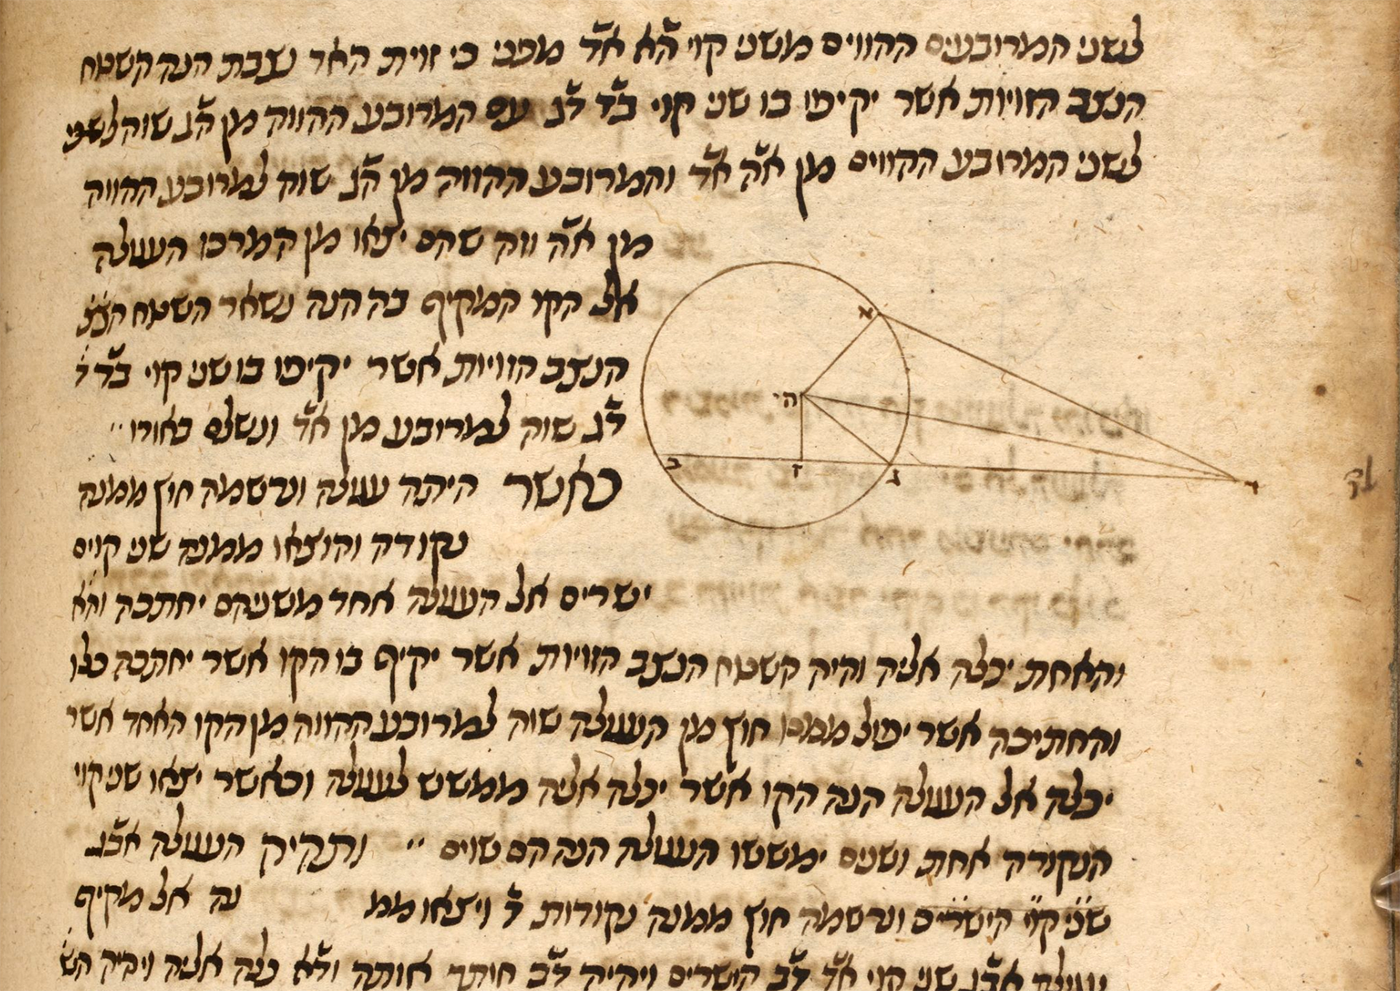 לשני המרובעים ההווים משני קוי הֿא אֿד מפני כי זוית האד נצבת הנה השטח
הנצב הזויות אשר יקיפו בו שני קוי בֿד דֿג עם המרובע ההווה מן הֿג שוה לשני
לשני המרובע הקווים מן אֿה אֿד והמרובע ההווה מן הֿג שוה למרובע ההווה
מן אֿה ווה שהם יצאו מן המרכז העגולה
אל הקו המקיף בה הנה נשאר השטח
הנצב הזויות אשר יקיפו בו שני קוי בֿד
דֿג שוה למרובע מן אֿד ונשלם באורו
כאשר היתה עגולה ונרשמה חוץ ממנה
נקודה והוצאו ממנה שני קוים
ישרים אל העגולה אחד משניהם יחתכה והֿא
והאחת יכלה אליה והיה השטח הנצב הזויות אשר יקיף בו הקו אשר יחתכה כלו
והחתיכה אשר יפול ממנו חוץ מן העגולה שוה למרובע ההווה מן הקו האחד אשר
יכלה אל העגולה הנה הקו אשר יכלה אליה ממשש לעגולה וכאשר יצאו שני קוי
הנקודה אחת ושנים ימששו העגולה הנה הם שוים ותהיה העגולה אבֿג
שני קוי הישרים ונרשמה חוץ ממנה נקודות דֿ ויצאו ממ נה אל מקיף
עגולת אבֿג שני קוי אֿד דֿב הישרים ויהיה דֿב חותך אותה ודֿא כלה אליה ויהיה
א
ה
ב
ז
ג
ד
לֿד